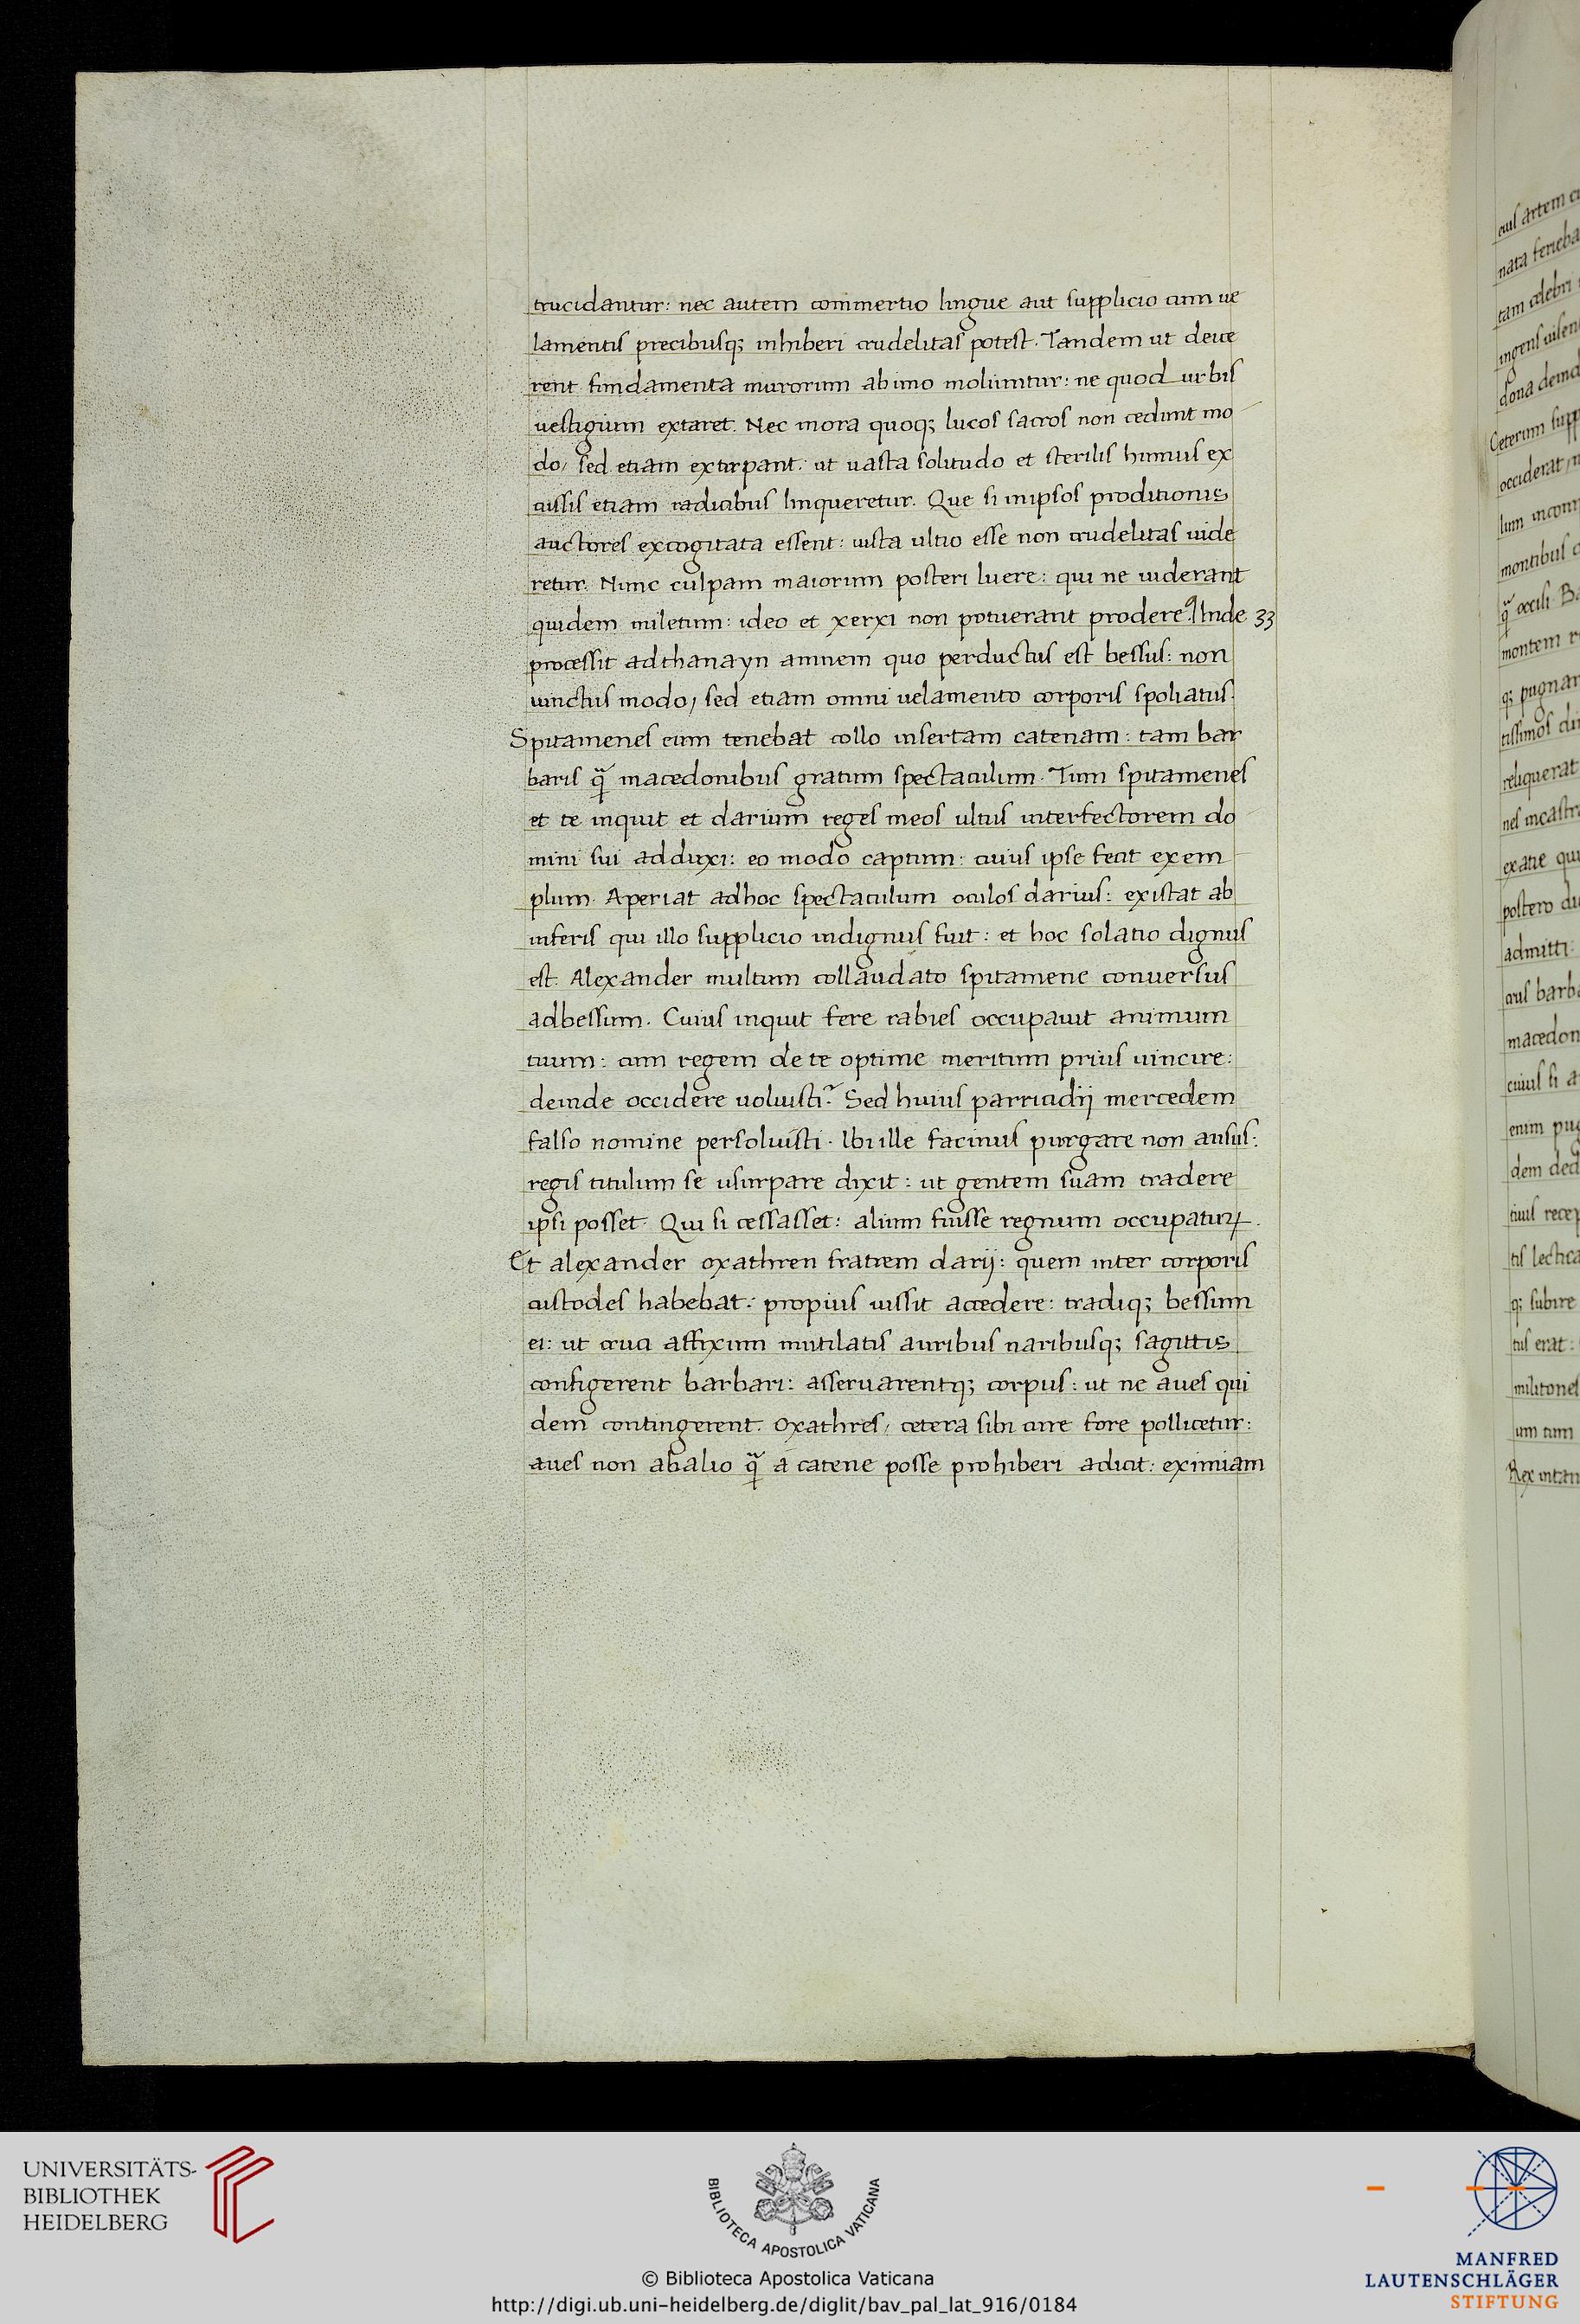 trucidantur: nec autem commertio lingue aut supplicio cum ue
lamentis precibusq; inhiberi crudelitas potest. Tandem ut deiice
rent fundamenta murorum ab imo moliuntur: ne quod urbis
uestigium extaret. Nec mora quoq; lucos sacros non cedunt mo
do, sed etiam extirpant: ut uasta solitudo et sterilis humus ex
cussis etiam radicibus linqueretur. Que si inipsos proditionis
auctores excogitata essent: iusta ultio esse non crudelitas uide
retur. Nunc culpam maiorum posteri luere: qui ne uiderant
quidem miletum: ideo et xerxi non potuerant prodere. Inde 33
processit adthanayn amnem quo perductus est bessus: non
uinctus modo, sed etiam omni uelamento corporis spoliatus.
Spitamenes eum tenebat collo insertam catenam: tam bar
baris q̃ macedonibus gratum spectaculum. Tum spitamenes
et te inquit et darium reges meos ultus interfectorem do
mini sui adduxi: eo modo captum: cuius ipse fecit exem
plum. Aperiat adhoc spectaculum oculos darius: existat ab
inferis qui illo supplicio indignus fuit: et hoc solatio dignus
est. Alexander multum collaudato spitamene conuersus
adbessum. Cuius inquit fere rabies occupauit animum
tuum: cum regem de te optime meritum prius uincire:
deinde occidere uoluisti? Sed huius parricidij mercedem
falso nomine persoluisti. Ibi ille facinus purgare non ausus:
regis titulum se usurpare dixit: ut gentem suam tradere
ipsi posset. Qui si cessasset: alium fuisse regnum occupaturꝝ.
Et alexander oxathren fratrem darij: quem inter corporis
custodes habebat: propius iussit accedere: tradiq; bessum
ei: ut cruci affixum mutilatis auribus naribusq; sagittis
configerent barbari: asseruarentq; corpus: ut ne aues qui
dem contingerent. Oxathres, cetera sibi cure fore pollicetur:
aues non abalio q̃ a catene posse prohiberi adicit: eximiam
eius artem
nata ferieba
tam celebri
dona deind
Ceterum supp
occiderat
montibus
montem
q; pugnan
reliquerat
nes incastr
postero di
admitti
macedon
cuius si a
enim pug
dem ded
tis lectica
q; subire
tus erat:
um tum
UNIVERSITÄTS-
BIBLIOTHEK
HEIDELBERG
BIBLIOTECA APOSTOLICA VATICANA
© Biblioteca Apostolica Vaticana
http://digi.ub.uni-heidelberg.de/diglit/bav_pal_lat_916/0184
MANFRED
LAUTENSCHLÄGER
STIFTUNG